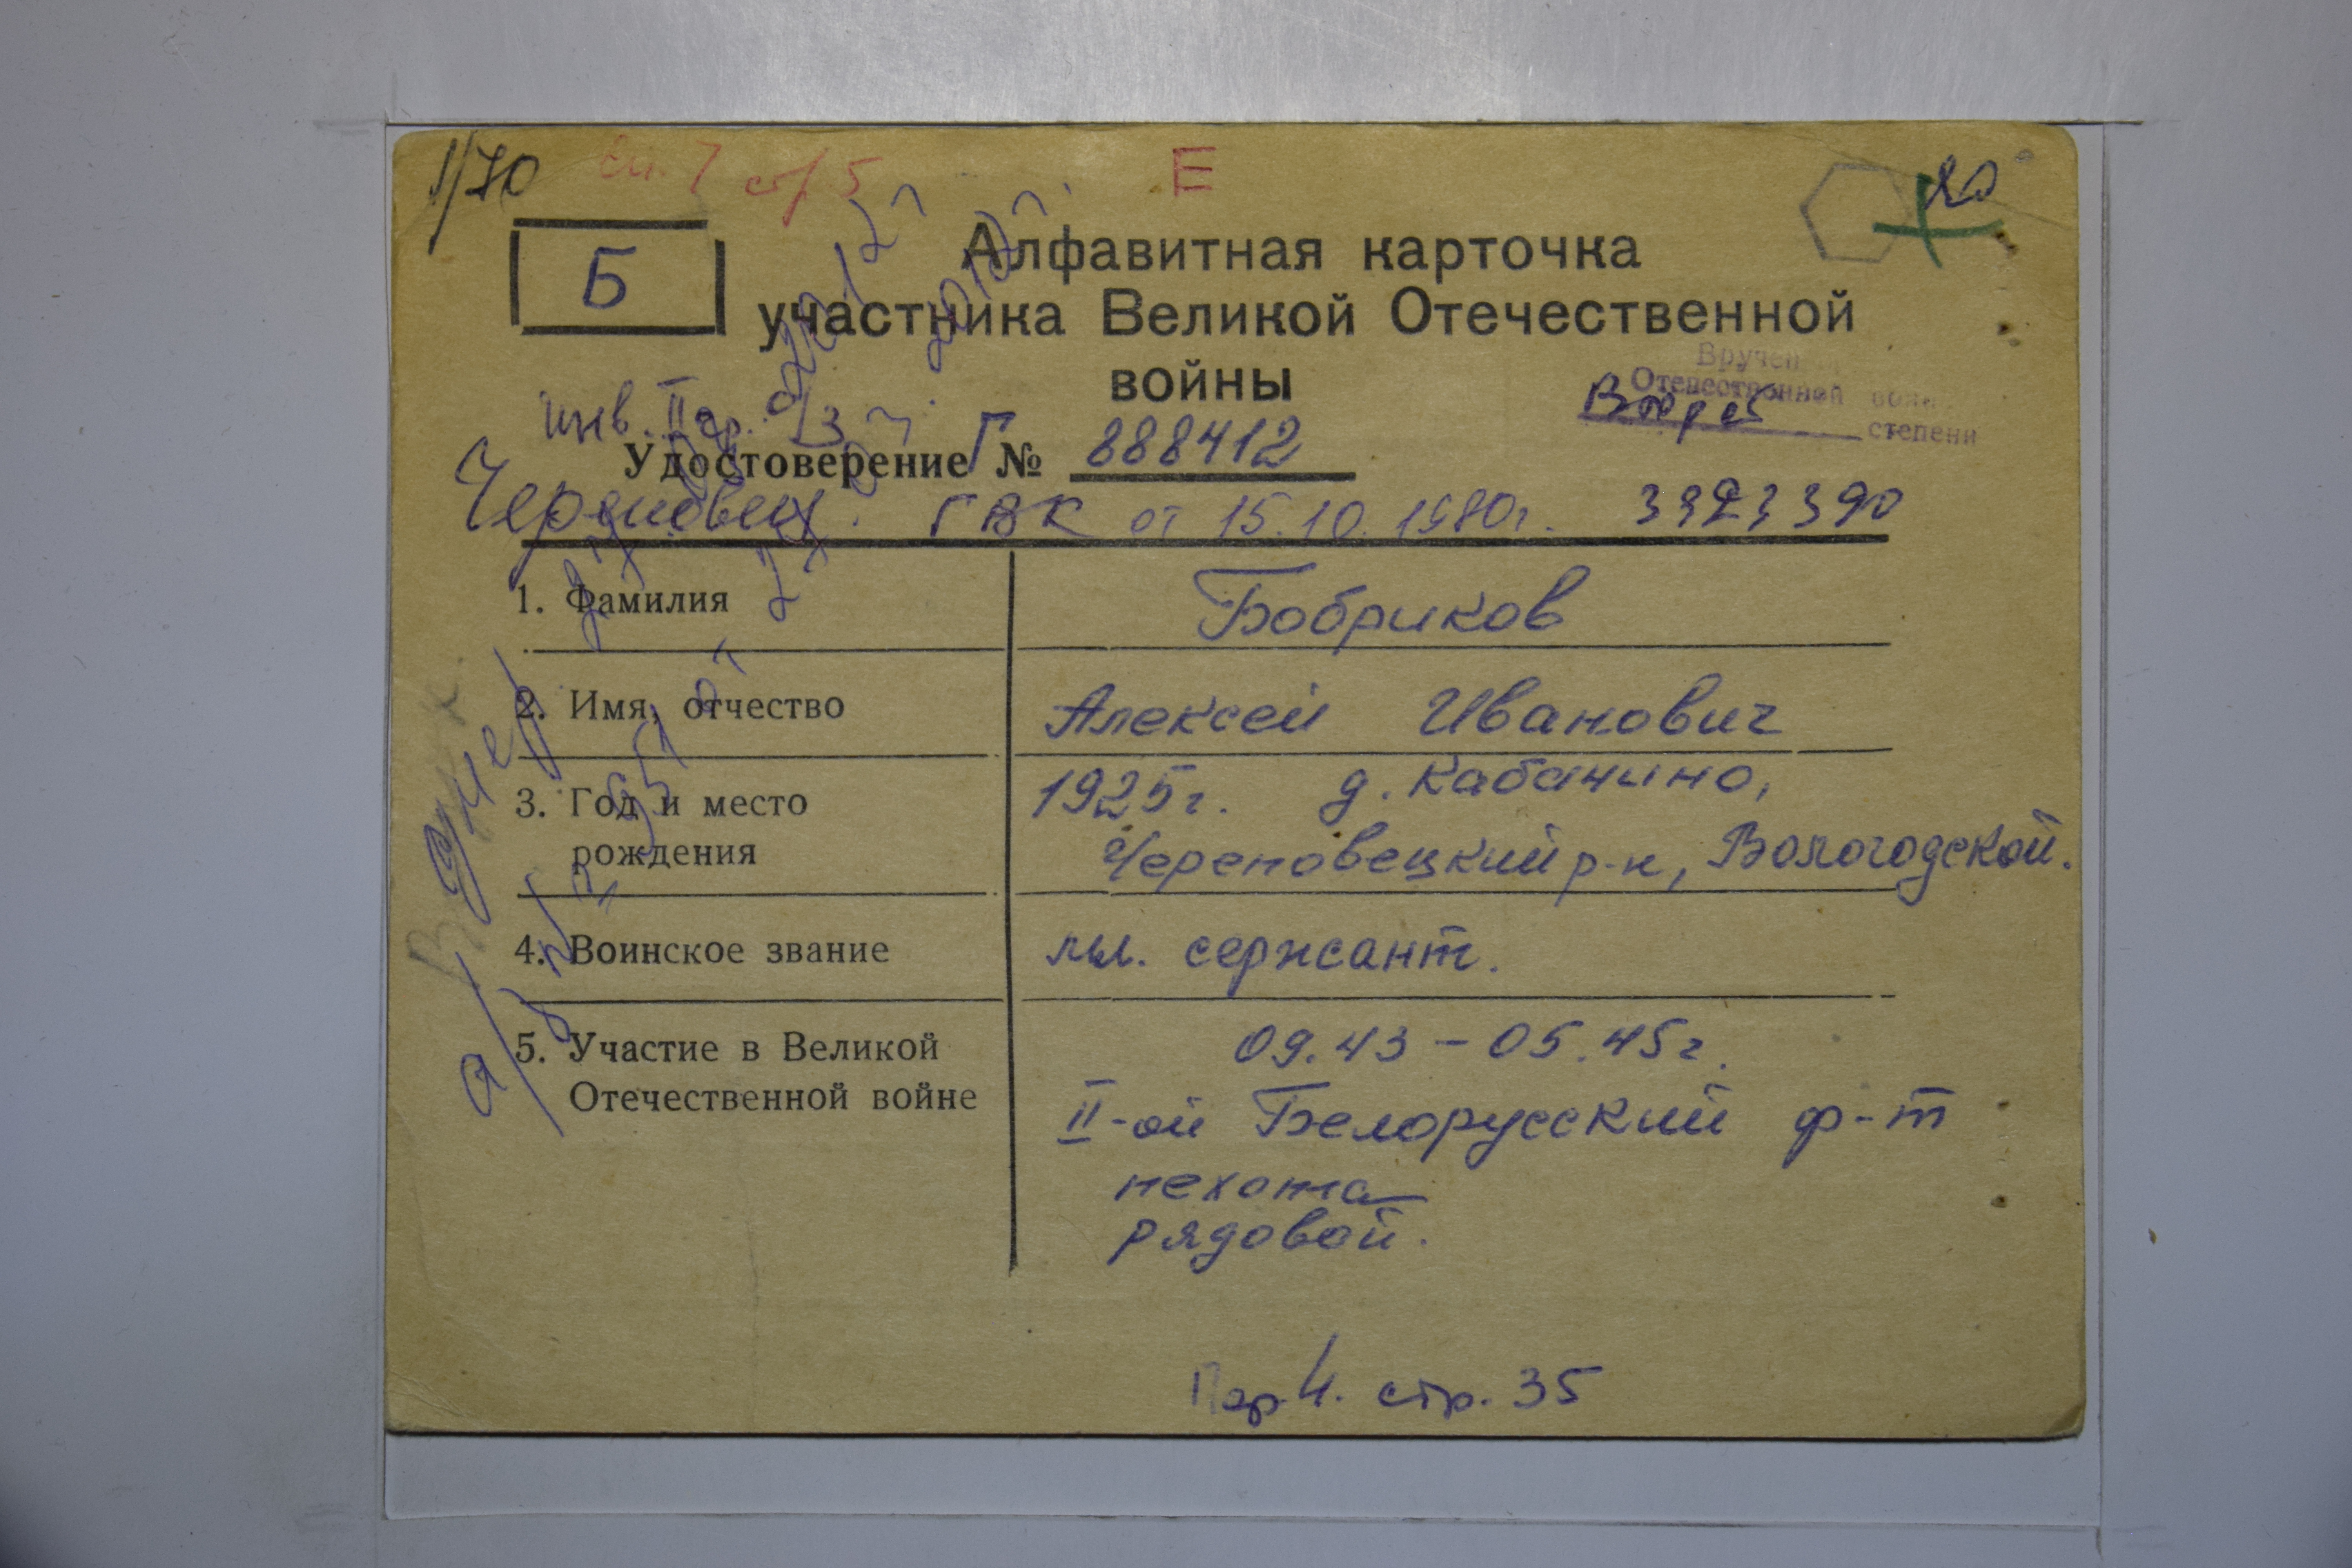 1/70 стр 5 Е 20
Б
Алфавитная карточка
участника Великой Отечественной
войны
Вручен
Отечественной войн
Второй степени
инв. II гр.
Удостоверение Г № 888412
Череповец. ГВК от 15.10.1980г. 3323390
1. Фамилия Бобриков
2. Имя, отчество Алексей Иванович
3. Год и место 1925г. д. Кабачино,
рождения Череповецкий р-н, Вологодской.
4. Воинское звание мл. сержант.
5. Участие в Великой 09.43 – 05.45г.
Отечественной войне II-ой Белорусский ф-т
пехота
рядовой.
умер
Пар. 4. стр. 35